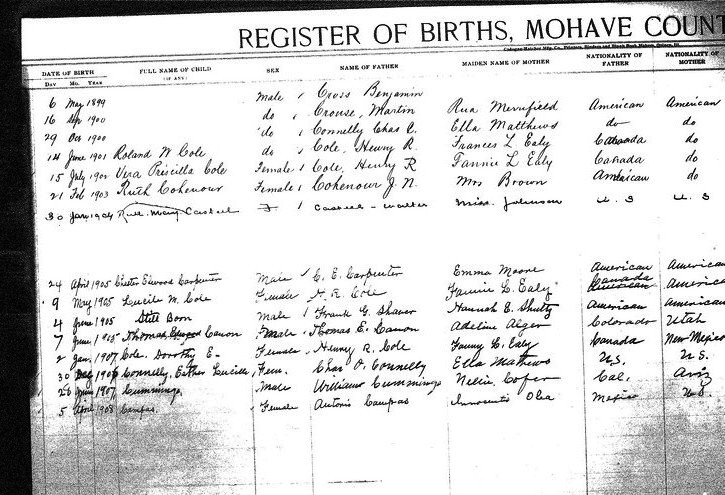 REGISTER OF BIRTHS, MOHAVE COUNT
DATE OF BIRTH FULL NAME OF CHILD SEX NAME OF FATHER MAIDEN NAME OF MOTHER NATIONALITY OF FATHER NATIONALITY OF MOTHER
DAY MO. YEAR (IF ANY)
6 May 1899 Male 1 Cross Benjamin Rua Merrifield American American
16 Sep 1900 do 1 Crouse, Martin Ella Matthews do do
29 Oct 1900 do 1 Connelly Chas O. Frances L Ealy Canada do
14 June 1901 Roland W Cole do 1 Cole, Henry R. Fannie L Ealy Canada do
15 July 1902 Vera Priscilla Cole Female 1 Cole, Henry R Mrs Brown American do
21 Feb 1903 Ruth Cohenour Female 1 Cohenour J. N. Miss. Johnson U. S U. S
30 Jan 1904 Mary Casteel F 1 Casteel - Walter
24 April 1905 Chester Elwood Carpenter Male 1 C. E. Carpenter Emma Moore American American
9 May 1905 Lucile M. Cole Female 1 H. R. Cole Fannie L. Ealy Canada American
4 June 1905 Still Born Male 1 Frank G. Shaver Hannah E. Shulty American American
7 June 1905 Thomas Edward Canon Male 1 Thomas E. Canon Adeline Alger Colorado Utah
2 Jan. 1907 Cole, Dorothy E- Female 1 Henry R. Cole Fanny L. Ealy Canada New Mexico
30 Dec 1907 Connelly, Esther Lucille Fem. Chas O. Connelly Ella Mathews U.S. U.S.
28 June 1907 Cummings Male William Cummings Nellie Cofer Cal. Ariz
5 April 1908 Campas Female Antonio Campas Innocente Mexico U.S.